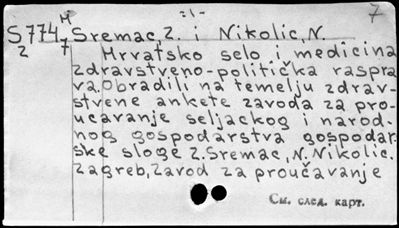 -1-
7
M
S774. Sremac, Z. i Nikolic, N.
2 7 Hrvatsko selo i medicina
zdravstveno-politička raspra
va. Obradili na temelju zdrav-
stvene ankete zavoda za pro-
učavanje seljackog i narod-
nog gospodarstva gospodar-
ske sloge Z. Sremac, N. Nikolic.
Zagreb, Zavod za proučavanje
См. след. карт.